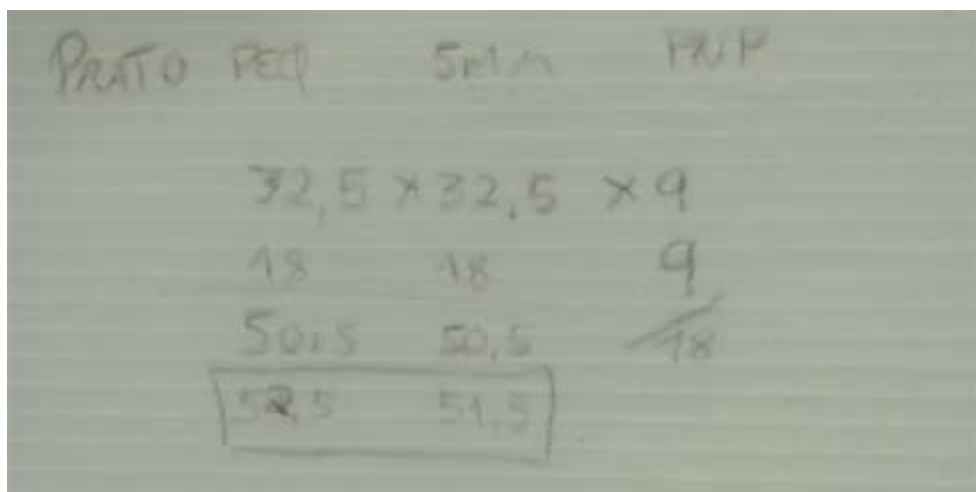 PRATO PEQ 5MM
32,5 x 32,5 x 9
18 18 9
50,5 50,5 18
51,5